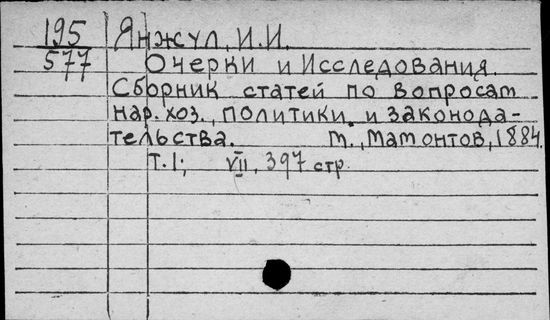 195 Янжул, И.И.
577 Очерки и Исследования.
Сборник статей по вопросам
нар. хоз., политики и законода-
тельства. М., Мамонтов, 1884.
Т. I; VII, 397 стр.